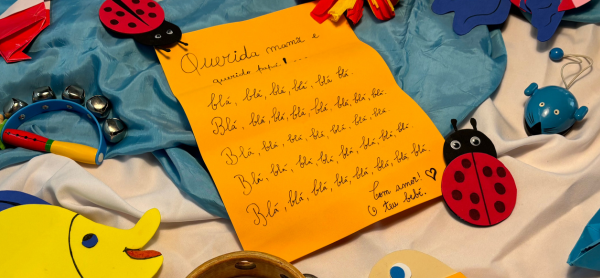 Querida mamã e
querido papá! ...
blá, blá, blá, blá, blá, blá.
Blá, blá, blá, blá, blá, blá, blá, blá.
Blá, blá, blá, blá, blá, blá, blá.
Blá, blá, blá, blá, blá, blá, blá.
Blá, blá, blá, blá, blá, blá, blá, blá.
Com amor!
O teu bebé.